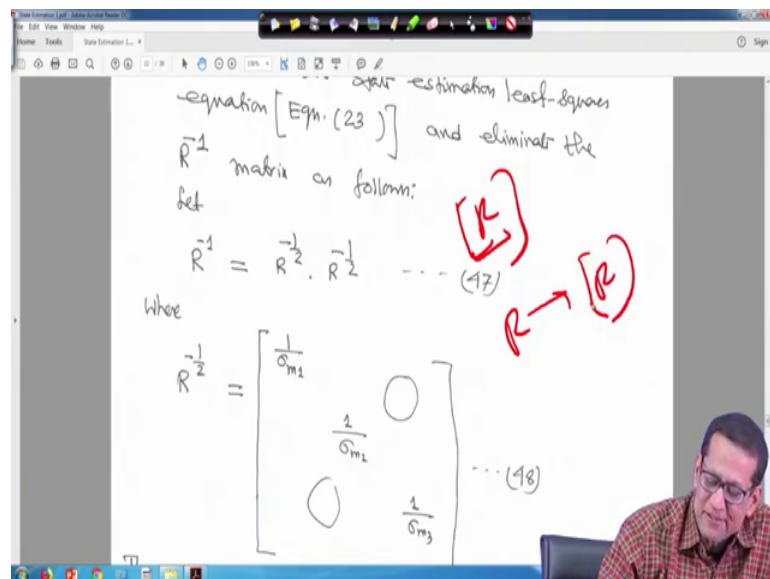 State Estimation 1.pdf - Adobe Acrobat Reader DC
File Edit View Window Help
Home Tools State Estimation 1... × Sign
estimation least-squares
equation [Eqn. (23)] and eliminate the
R^{-1} matrix as follows:
Let
R^{-1} = R^{-1/2} . R^{-1/2} ---- (47)
[R]
R → [R]
Where
R^{-1/2} = [ 1/σ_{m1} 0
1/σ_{m2}
0 1/σ_{m3} ] ---(48)